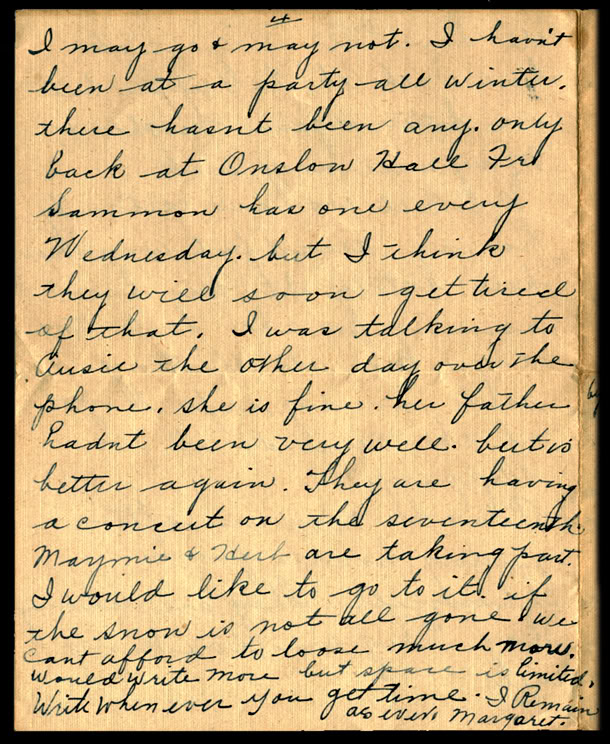 4
I may go & may not. I havn't
been at a party all winter.
there hasnt been any. only
back at Onslow Hall Fr
Sammon has one every
Wednesday. but I think
they will soon get tired
of that. I was talking to
Ausie the other day over the
phone. she is fine. her father
hadnt been very well. but is
better again. They are having
a concert on the seventeenth.
Maymie & Herb are taking part.
I would like to go to it. if
the snow is not all gone we
cant afford to loose much more.
Would write more but space is limited.
Write when ever you get time. I Remain
as ever. Margaret.